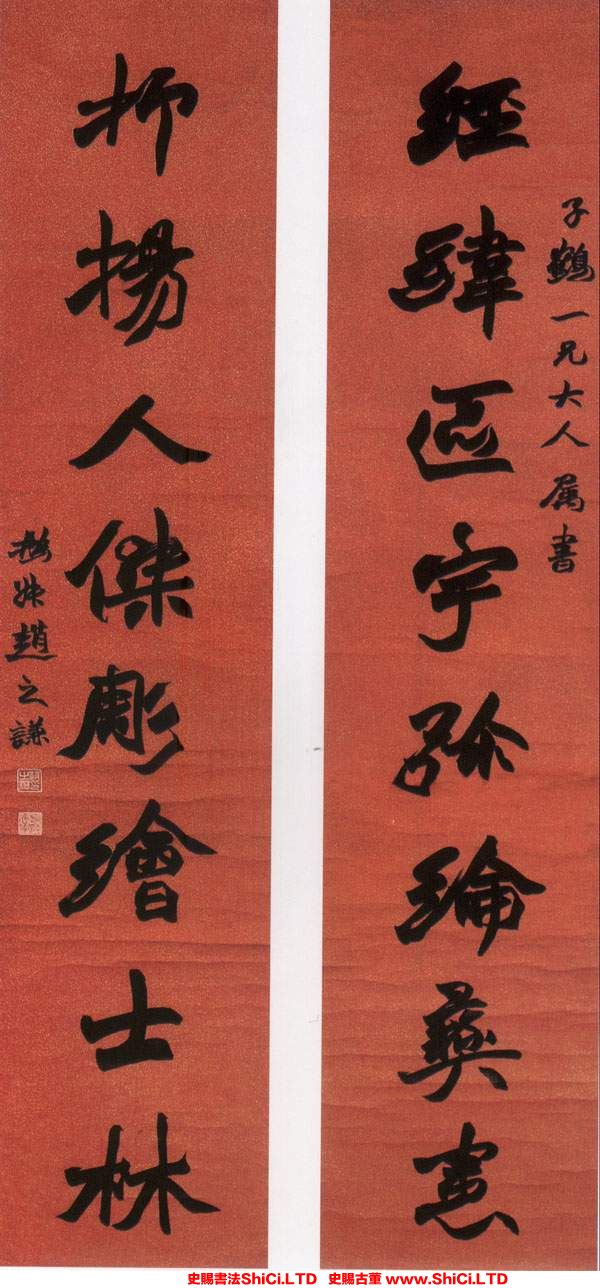 子鶴一兄大人属書
經緯區宇弥綸彝憲
抑揚人傑彫繪士林
撝叔趙之謙
史賜書法ShiCi.LTD 史賜古董 www.ShiCi.LTD